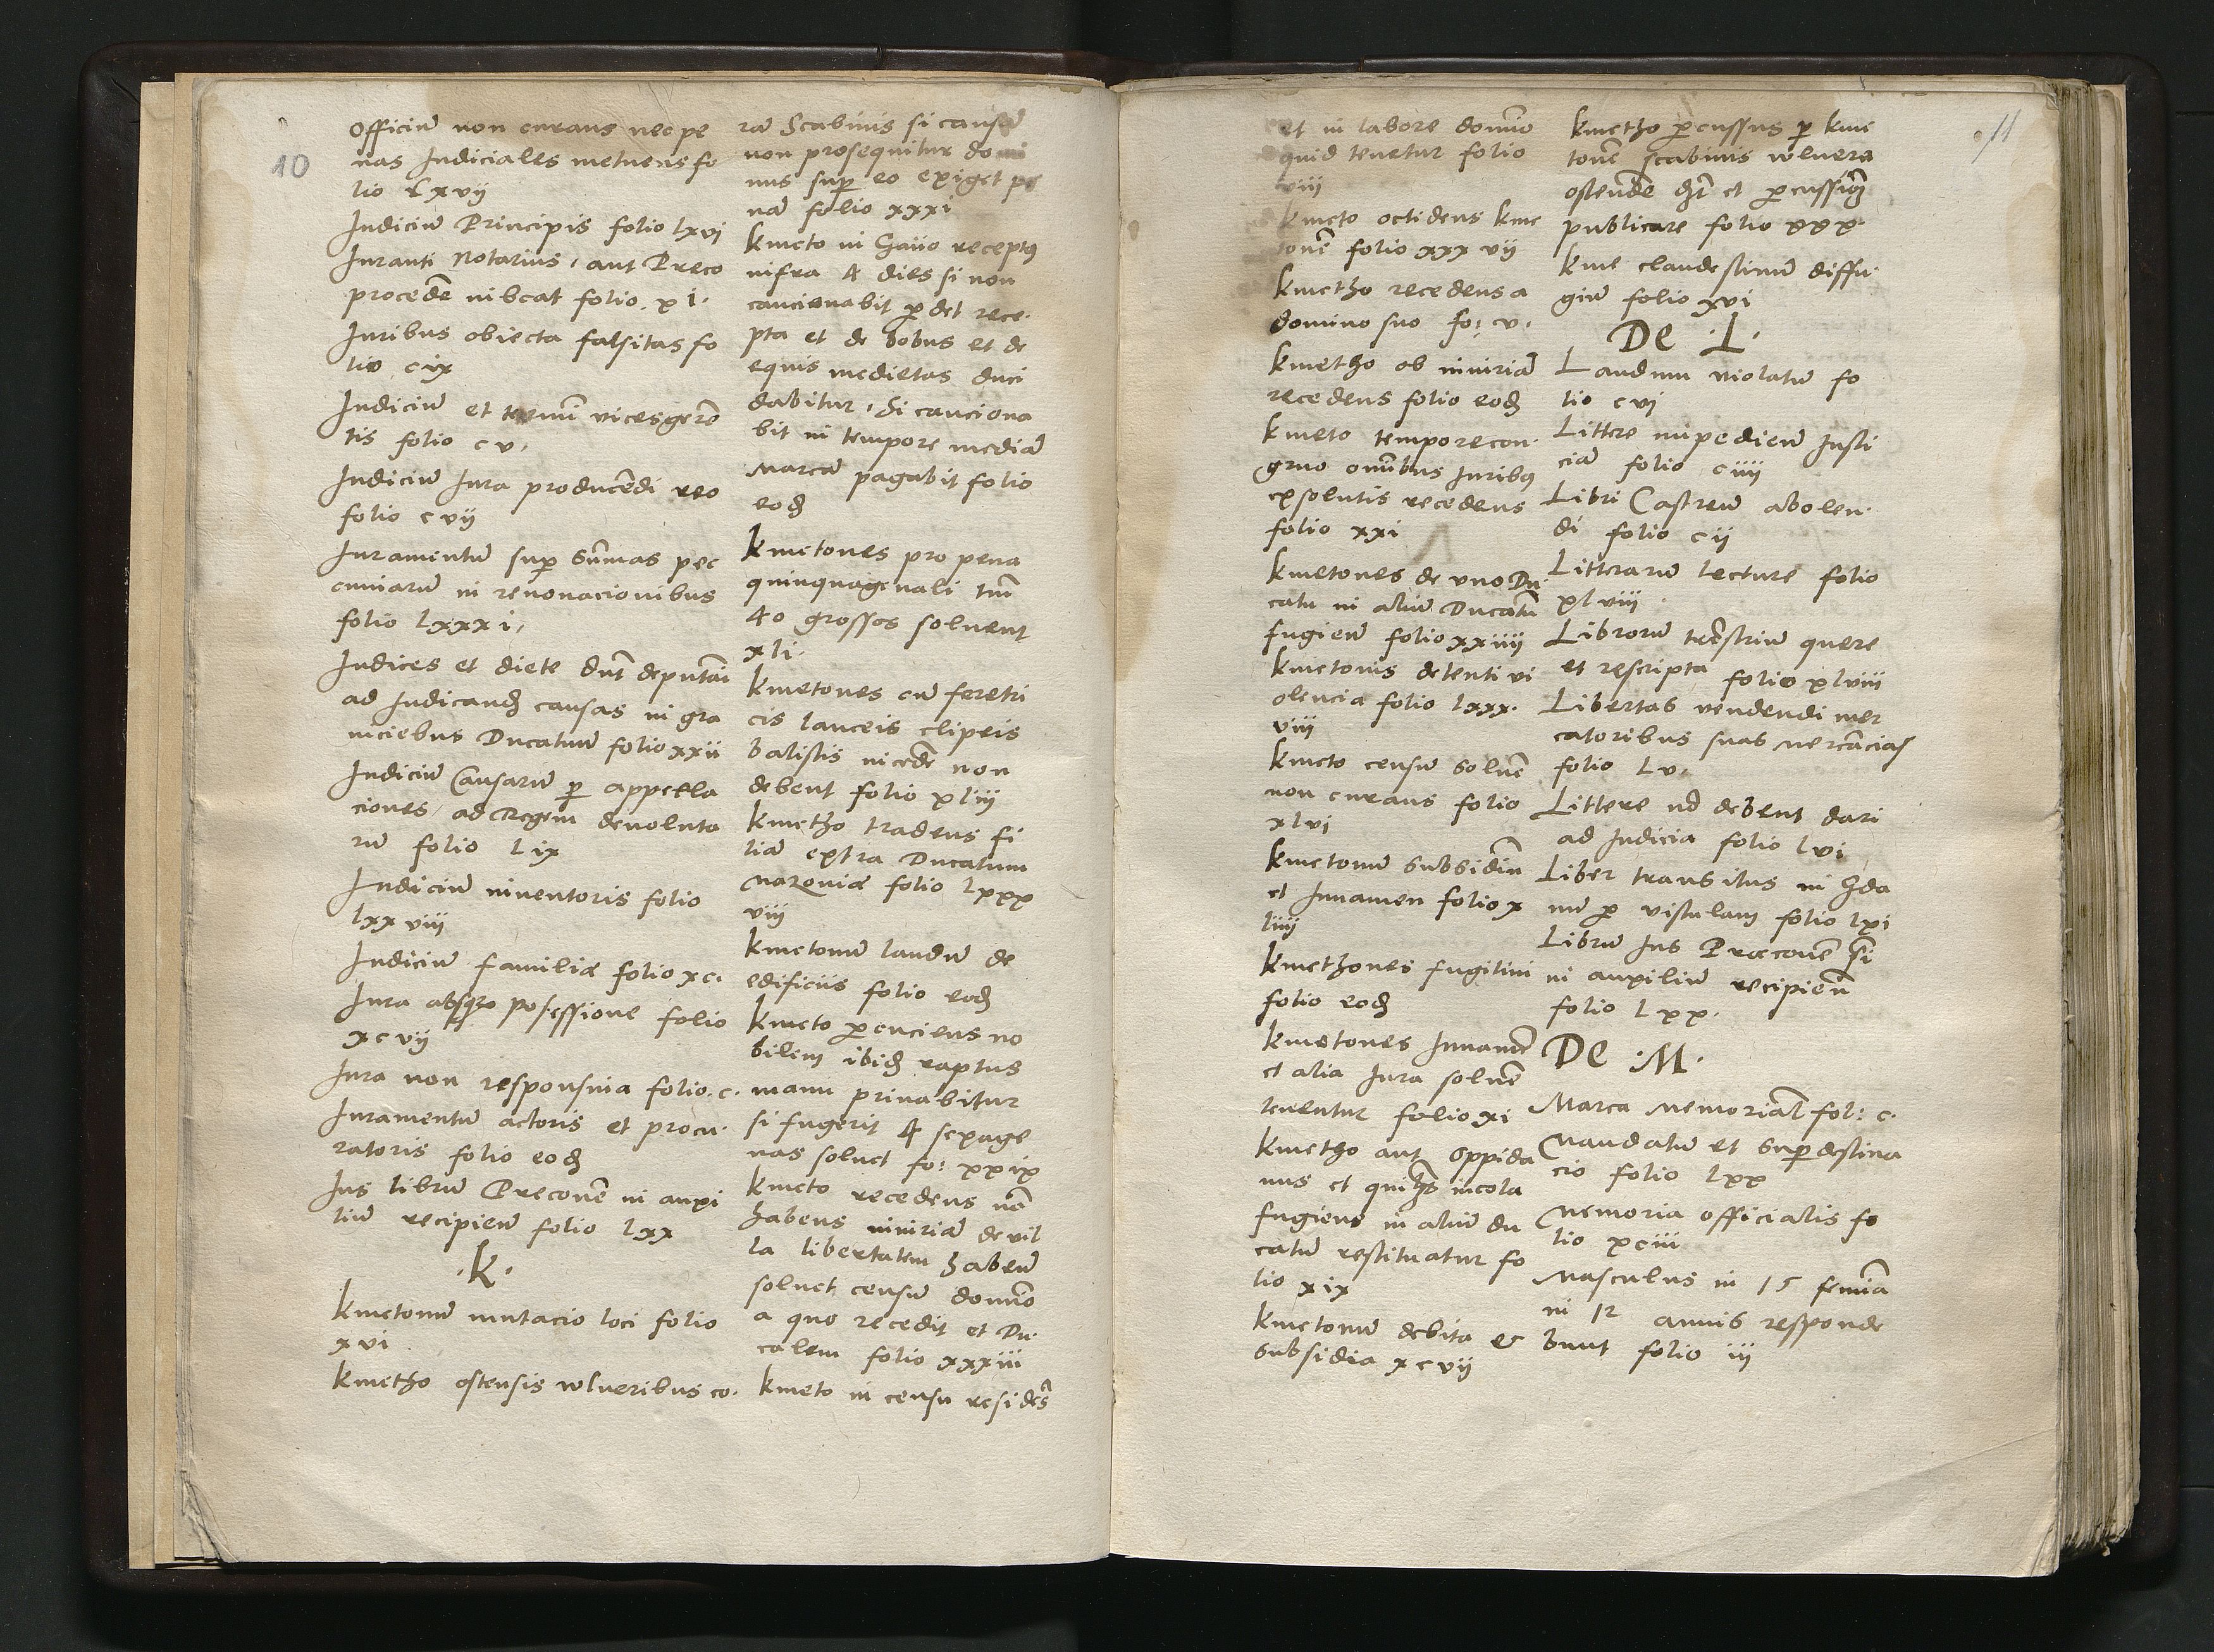 10
Officiũ non curans nec pe
nas Judiciales metuens fo
lio Lxvij
Judiciũ Principis folio lxvj
Juranti Notarius, aut Preco
procedẽ nibeat folio. xi.
Juribus obiecta falsitas fo
lio cix
Judiciũ et termĩ vicesgerẽ
tis folio cv.
Judiciũ Jura producẽdi reo
folio cvij
Juramentũ sup sũmas pec
cuniarũ in renonacionibus
folio lxxxi,
Judices et diete dñt deputãi
ad Judicand causas in gra
niciebus Ducatuũ folio xxii
Judiciũ Causarũ p appella
ciones, ad Regem devoluta
rũ folio Lix
Judiciũ inventoris folio
lxxviij
Judiciũ familiæ folio xc.
Jura absqz possessione folio
xcvij
Jura non responsiua folio. c.
Juramentũ actoris et procu.
ratoris folio eod
Jus librũ Preconẽ in auxi
liũ recipieñ folio lxx
.K.
Kmetonũ mutacio loci folio
xvi
Kmetho ostensis wlneribus co.
rã Scabinis si causã
non prosequitur domi
nus sup eo exiget pe
nã folio xxxi
Kmeto in Gaẏo receptq
infra 4 dies si non
caucionabit pdet rece.
pta et de bobus et de
equis medietas duci
dabitur, Si cauciona
bit in tempore mediã
Marcã pagabit folio
eod
Kmetones pro pena
quinquagenali tm̃
40 grossos soluent
xli.
Kmetones cũ feretri
cis lanceis clipeis
balistis incedẽ non
debent folio xliij
Kmetho tradens fi
liã extra Ducatum
Mazoniæ folio lxxx
viij
Kmetonũ laudũ de
edificiis folio eod
Kmeto pcuciens no
bilem ibid captus
manu priuabitur
si fugerit 4 sexage
nas soluet fo: xxix
Kmeto recedens nõ
habens iniuriã de vil
la libertatem habeñ
soluet censũ domĩo
a quo recedit et Du.
calem folio xxxiii
Kmeto in censu residẽs
11
et in labore domĩo
quid tenetur folio
viij
Kmeto occidens Kme
tonẽ folio xxxvij
Kmetho recedens a
domino suo fo: v.
Kmetho ob iniuriã
recedens folio eod
Kmeto tempore con.
gruo omĩbus Juribq
exsolutis recedens
folio xxi
Kmetones de uno Du.
catu in aliũ Ducatũ
fugieñ folio xxiiij
Kmetonis detenti vi
olencia folio lxxx.
viij
Kmeto censũ soluẽ
non curans folio
xlvi
Kmetonũ subsidiũ
et Juuamen folio x
liiij
Kmethones fugitiui
folio eod
Kmetones Juuamẽ
et alia Jura soluẽ
tenentur folio xi
Kmetho aut oppida
nus et quilibet incola
fugiens in aliũ du
catũ restituatur fo
lio xix
Kmetonũ debita et
subsidia xcvij
Kmetho pcussus p Kme
tonẽ scabinis wlnera
ostendẽ dt et pcussiõẽ
publicare folio xxx.
Kme clandestinũ diffu.
giũ folio xvi
De .L.
Laudum violatũ fo
lio cvj
Littere impedieñ Justi
ciã folio ciiij
Libri Castreñ abolen.
di folio cij
Litterarũ lecture folio
xlviij.
Librorũ trestriũ querẽ
et rescripta folio xlviij
Libertas vendendi mer
catoribus suas mercãcias
folio Lv.
Littere nõ debent dari
ad Judicia folio lvi
Liber transitus in Gda
nũ p vistulam folio lxi
Librũ Jus Præconẽ si
in auxiliũ recipieñ
folio Lxx.
De .M.
Marca Memorial fol: c.
Mandatũ et supdestina
cio folio lxx
Memoria officialis fo
lio xciii
Masculus in 15 femĩa
in 12 annis responde
bunt folio iij